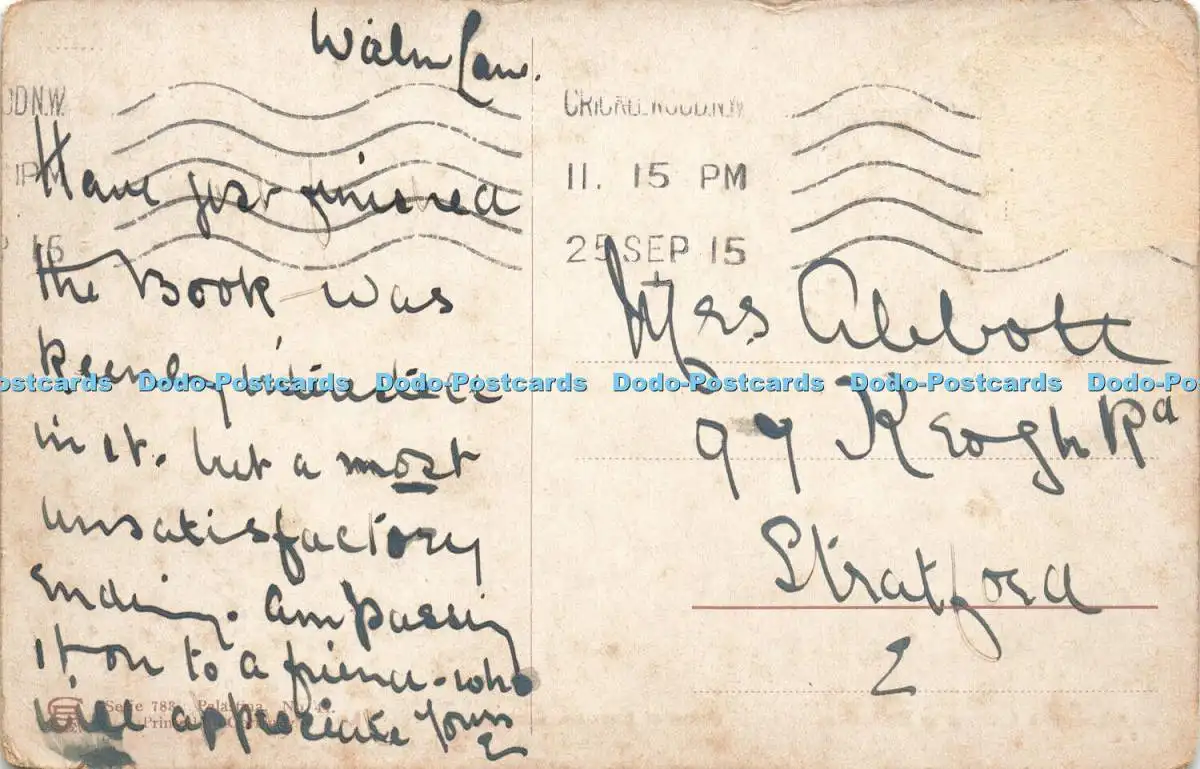 Walm Lane.
Have just finished
the Book was
keenly interested
in it. but a most
unsatisfactory
Ending. am passing
it on to a friend - who
will appreciate Yours
E
CRICKLEWOOD.N.W.
11. 15 PM
25 SEP 15
Mrs Abbott
99 Keogh Rd
Stratford
E
Serie 788. Palestina. No
Dodo-Postcards Dodo-Postcards Dodo-Postcards Dodo-Postcards